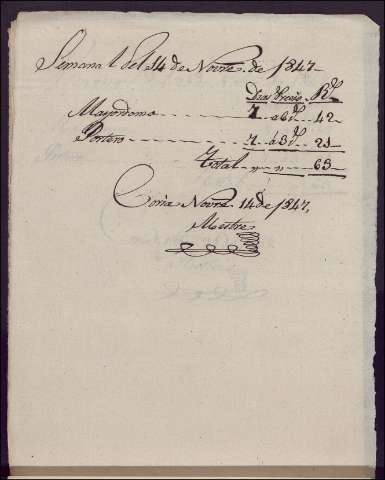 Semanal del 14 de Novre. de 1847
Dias Precio Rs.
Mayordomo 7 a 6 rs. 42
Portero 7 a 3 rs. 21
Total " " 63
Coria Novre. 14 de 1847.
Mestre